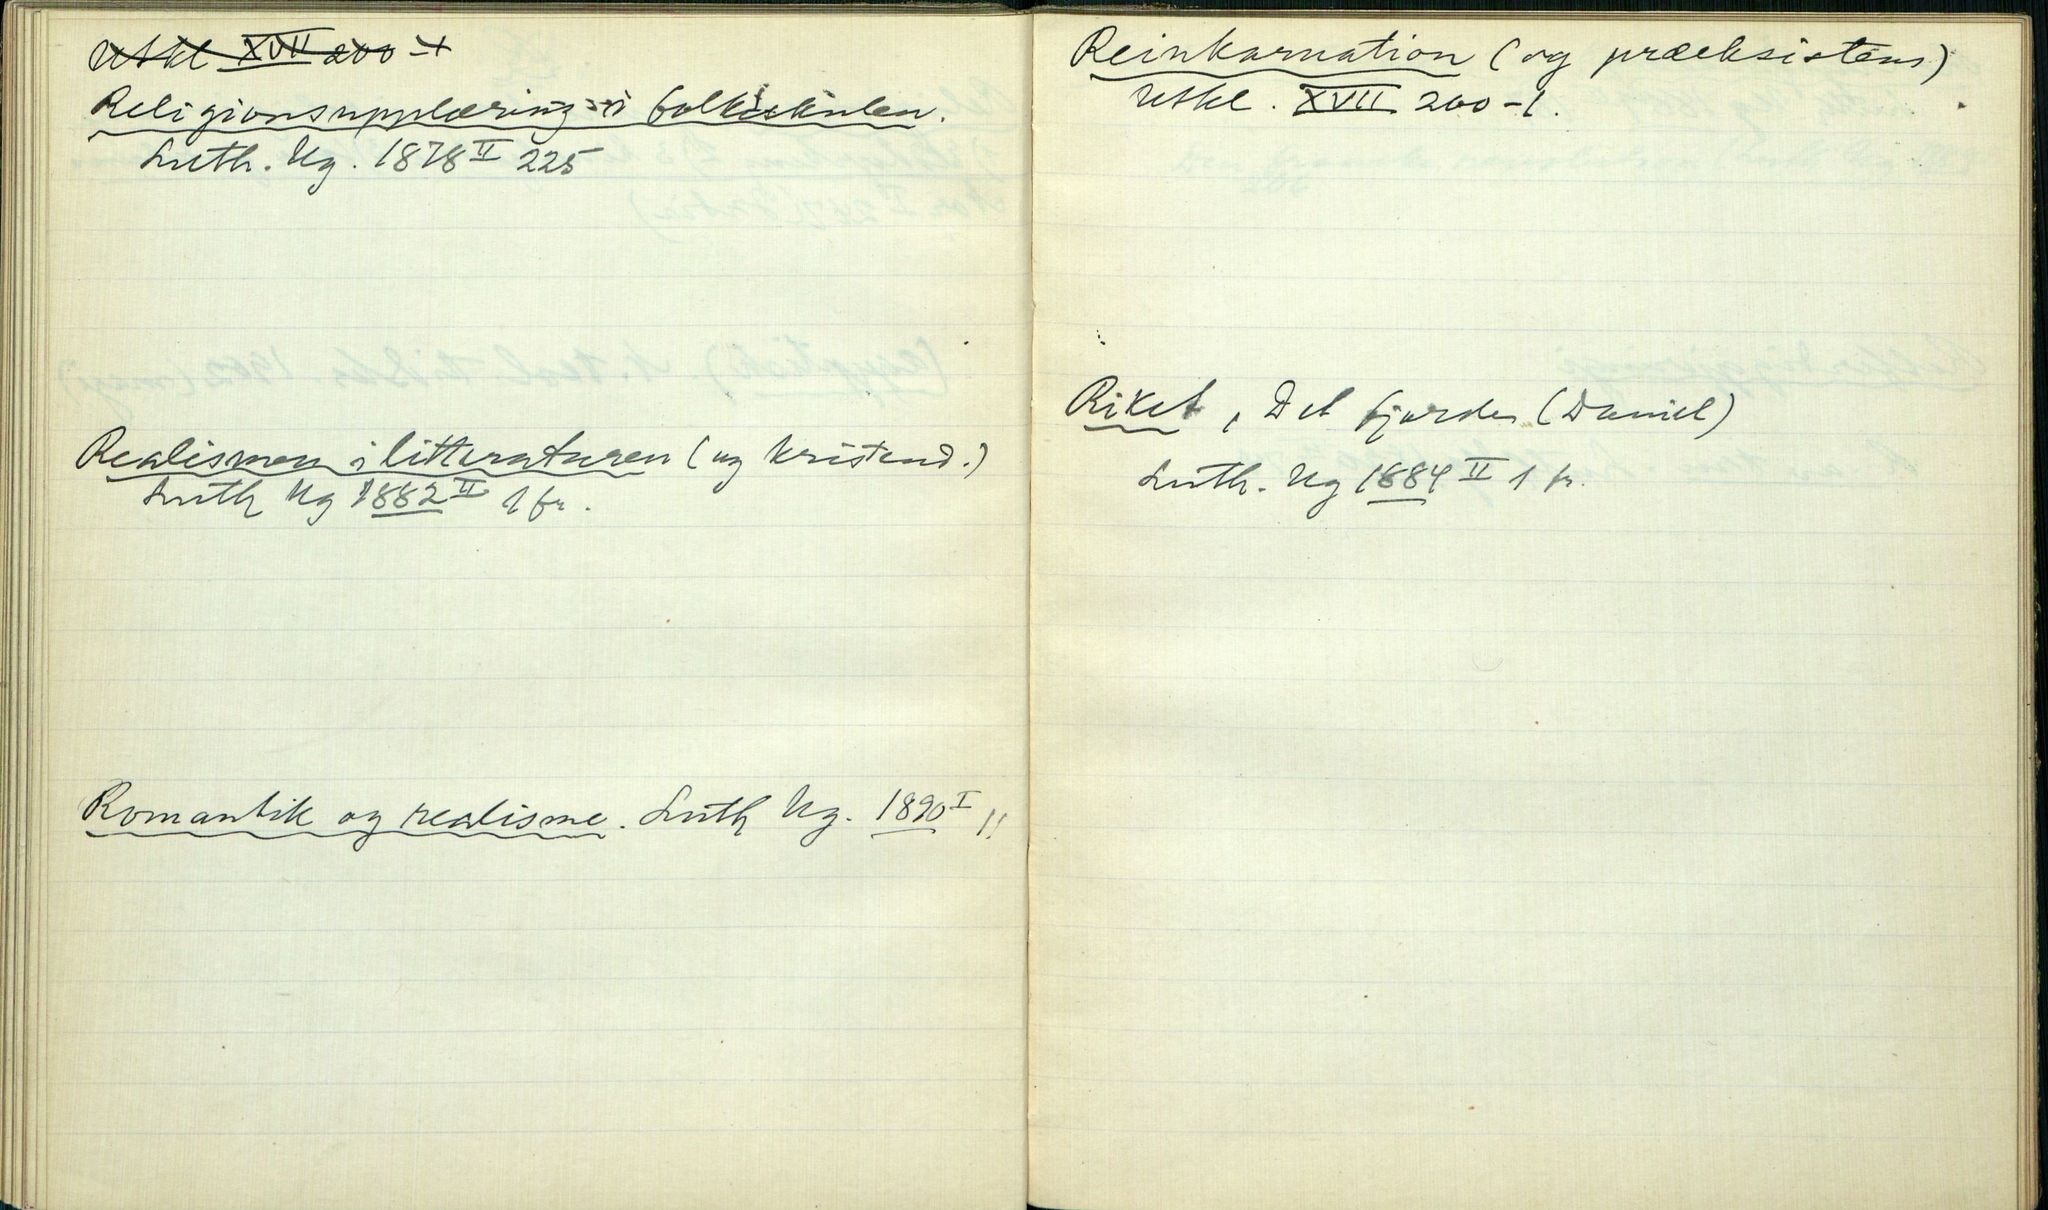 Utkl XVII 200-1
Religionsupplæring i folkeskulen.
Luth. Ug. 1878 II 225
Realismen i litteraturen (og kristend.)
Luth Ug 1882 II 1 fr.
Romantik og realisme. Luth Ug. 1890 I 11
Reinkarnation (og præeksistens)
Utkl. XVII 200-1.
Riket, Det fjerde (Daniel)
Luth. Ug 1884 II 1 fr.